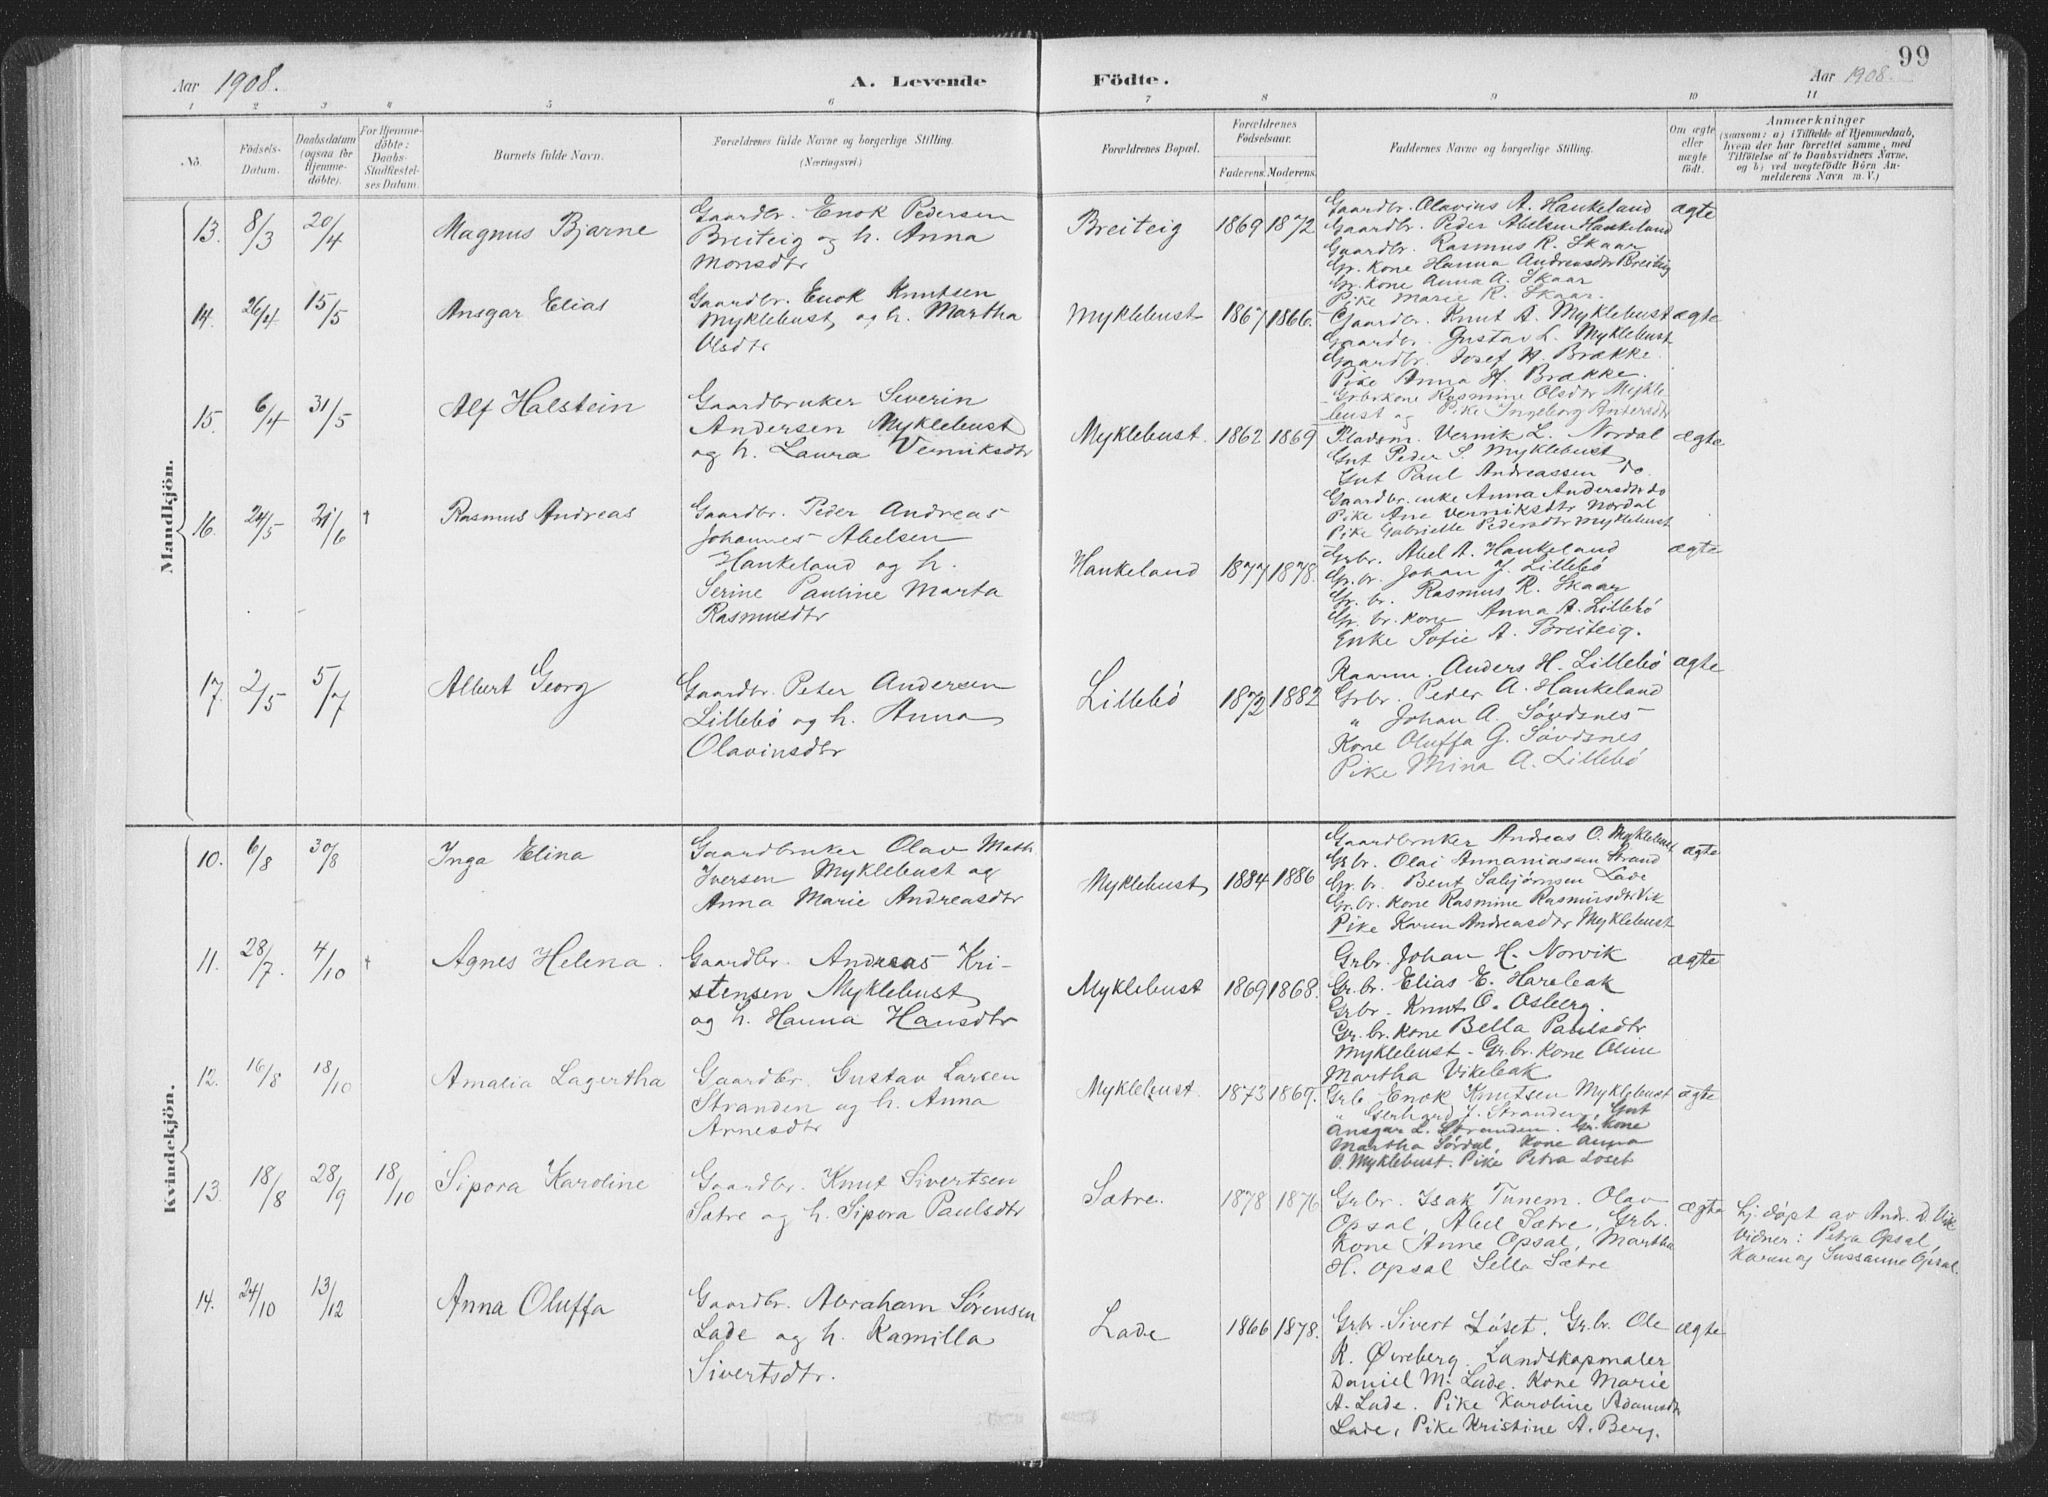 99
Aar 1908.
A. Levende
Födte.
Aar 1908.
1 2 3 4 5 6 7 8 9 10 11
Nô.
Födsels-
Datum.
Daabsdatum
(ogsaa for
Hjemme-
döbte).
For Hjemme-
döbte:
Daabs-
Stadfæstel-
ses Datum.
Barnets fulde Navn.
Forældrenes fulde Navne og borgerlige Stilling.
(Næringsvei)
Forældrenes Bopæl.
Forældrenes
Födselsaar.
Faderens. Moderens.
Faddernes Navne og borgerlige Stilling.
Om ægte
eller
uægte
födt.
Anmærkninger
(saasom: a) i Tilfælde af Hjemmedaab,
hvem der har forrettet samme, med
Tilföielse af to Daabsvidners Navne,
og b) ved uægtefödte Börn An-
melderens Navn m. V.)
Mandkjön.
13. 8/3 20/4 Magnus Bjarne
Gaardbr. Enok Pedersen
Breiteig og h. Anna
Monsdtr
Breiteig 1869 1872
Gaardbr. Olavius A. Hankeland
Gaardbr. Peder Abelsen Hankeland
Gaardbr. Rasmus R. Skaar
Gr. Kone Hanna Andreasdtr Breiteig
Gr. Kone Anna A. Skaar
Pike Marie R. Skaar.
ægte
14. 26/4 15/5 Ansgar Elias
Gaardbr. Enok Knutsen
Myklebust og h. Martha
Olsdtr
Myklebust 1867 1866.
Gaardbr. Knut A. Myklebust
Gaardbr. Gustav L. Myklebust
Gaardbr. Josef H. Brække.
Pike Anna H. Brække.
Grbr kone Rasmine Olsdtr Mykle-
bust og Pike Ingeborg Andersdtr
ægte
15. 6/4 31/5 Alf Halstein
Gaardbruker Severin
Andersen Myklebust
og h. Laura Verniksdtr
Myklebust. 1862 1869
Pladsm. Vernik L. Nordal
Gut Peder S. Myklebust
Gut Paul Andreassen do.
Gaardbr. enke Anna Andersdtr do
Pike Ane Verniksdtr Nordal
Pike Gabrielle Pedersdtr Myklebust
ægte
16. 24/5 21/6 † Rasmus Andreas
Gaardbr. Peder Andreas
Johannes Abelsen
Hankeland og h.
Serine Pauline Marta
Rasmusdtr
Hankeland 1877 1878.
Grbr. Abel A. Hankeland
Gr. br. Johan J. Lillebö
Gr. br. Rasmus R. Skaar
Gr. br. kone Anna A. Lillebö
Enke Sofie A. Breiteig.
ægte
17. 2/5 5/7 Albert Georg
Gaardbr. Peter Andersen
Lillebö og h. Anna
Olavinsdtr
Lillebö 1872 1882
Kaarm. Anders H. Lillebö
Grbr. Peder A. Hankeland
" Johan A. Sövdsnes
Kone Oluffa G. Sövdsnes
Pike Mina A. Lillebö
ægte
Kvindekjön.
10. 6/8 30/8 Inga Elina
Gaardbruker Olav Math
Iversen Myklebust og
Anna Marie Andreasdtr
Myklebust 1884 1886
Gaardbruker Andreas O. Myklebust
Gr br. Olai Annaniassen Strand
Gr. br. Bent Salujörnsen Lade
Gr. br. Kone Rasmine Rasmusdtr Vik
Pike Karen Andreasdtr Myklebust
ægte
11. 28/7. 4/10 † Agnes Helena.
Gaardbr. Andreas Kri-
stensen Myklebust
og h. Hanna Hansdtr
Myklebust 1869 1868.
Grbr. Johan H. Norvik
Gr. br. Elias E. Hareleak
Grbr. Knut O. Osberg.
Gr. br. kone Bella Paulsdtr
Myklebust - Gr. br. kone Oline
Martha Vikeleak
ægte
12. 16/8 18/10 Amalia Lagertha
Gaardbr. Gustav Larsen
Stranden og h. Anna
Arnesdtr
Myklebust. 1873 1869.
Grb Enok Knutsen Myklebust
" Gerhard J. Stranden, Gut
Ansgar L. Stranden. Gr. Kone
Martha Sördal, Kone Anna
O. Myklebust. Pike Petra Löset
ægte
13. 18/8 28/9 18/10 Sipora Karoline
Gaardbr. Knut Sivertsen
Sætre og h. Sipora Paulsdtr
Sætre. 1878 1876
Grbr. Isak Tunem. Olav
Opsal, Abel Sætre, Grbr.
Kone Anne Opsal, Martha
H. Opsal Sella Sætre
ægte
hj. döpt av Andr. D. Vik
Vidner: Petra Opsal,
Karen og Sussanne Opsal.
14. 24/10 13/12 Anna Oluffa
Gaardbr. Abraham Sörensen
Lade og h. Kamilla
Sivertsdtr.
Lade 1866 1878.
Grbr. Sivert Löset. Gr. br. Ole
K. Øvreberg. Landskapmaler
Daniel M. Lade. Kone Marie
A. Lade. Pike Karoline Adamsdtr
Lade, Pike Kristine A. Berg.
ægte